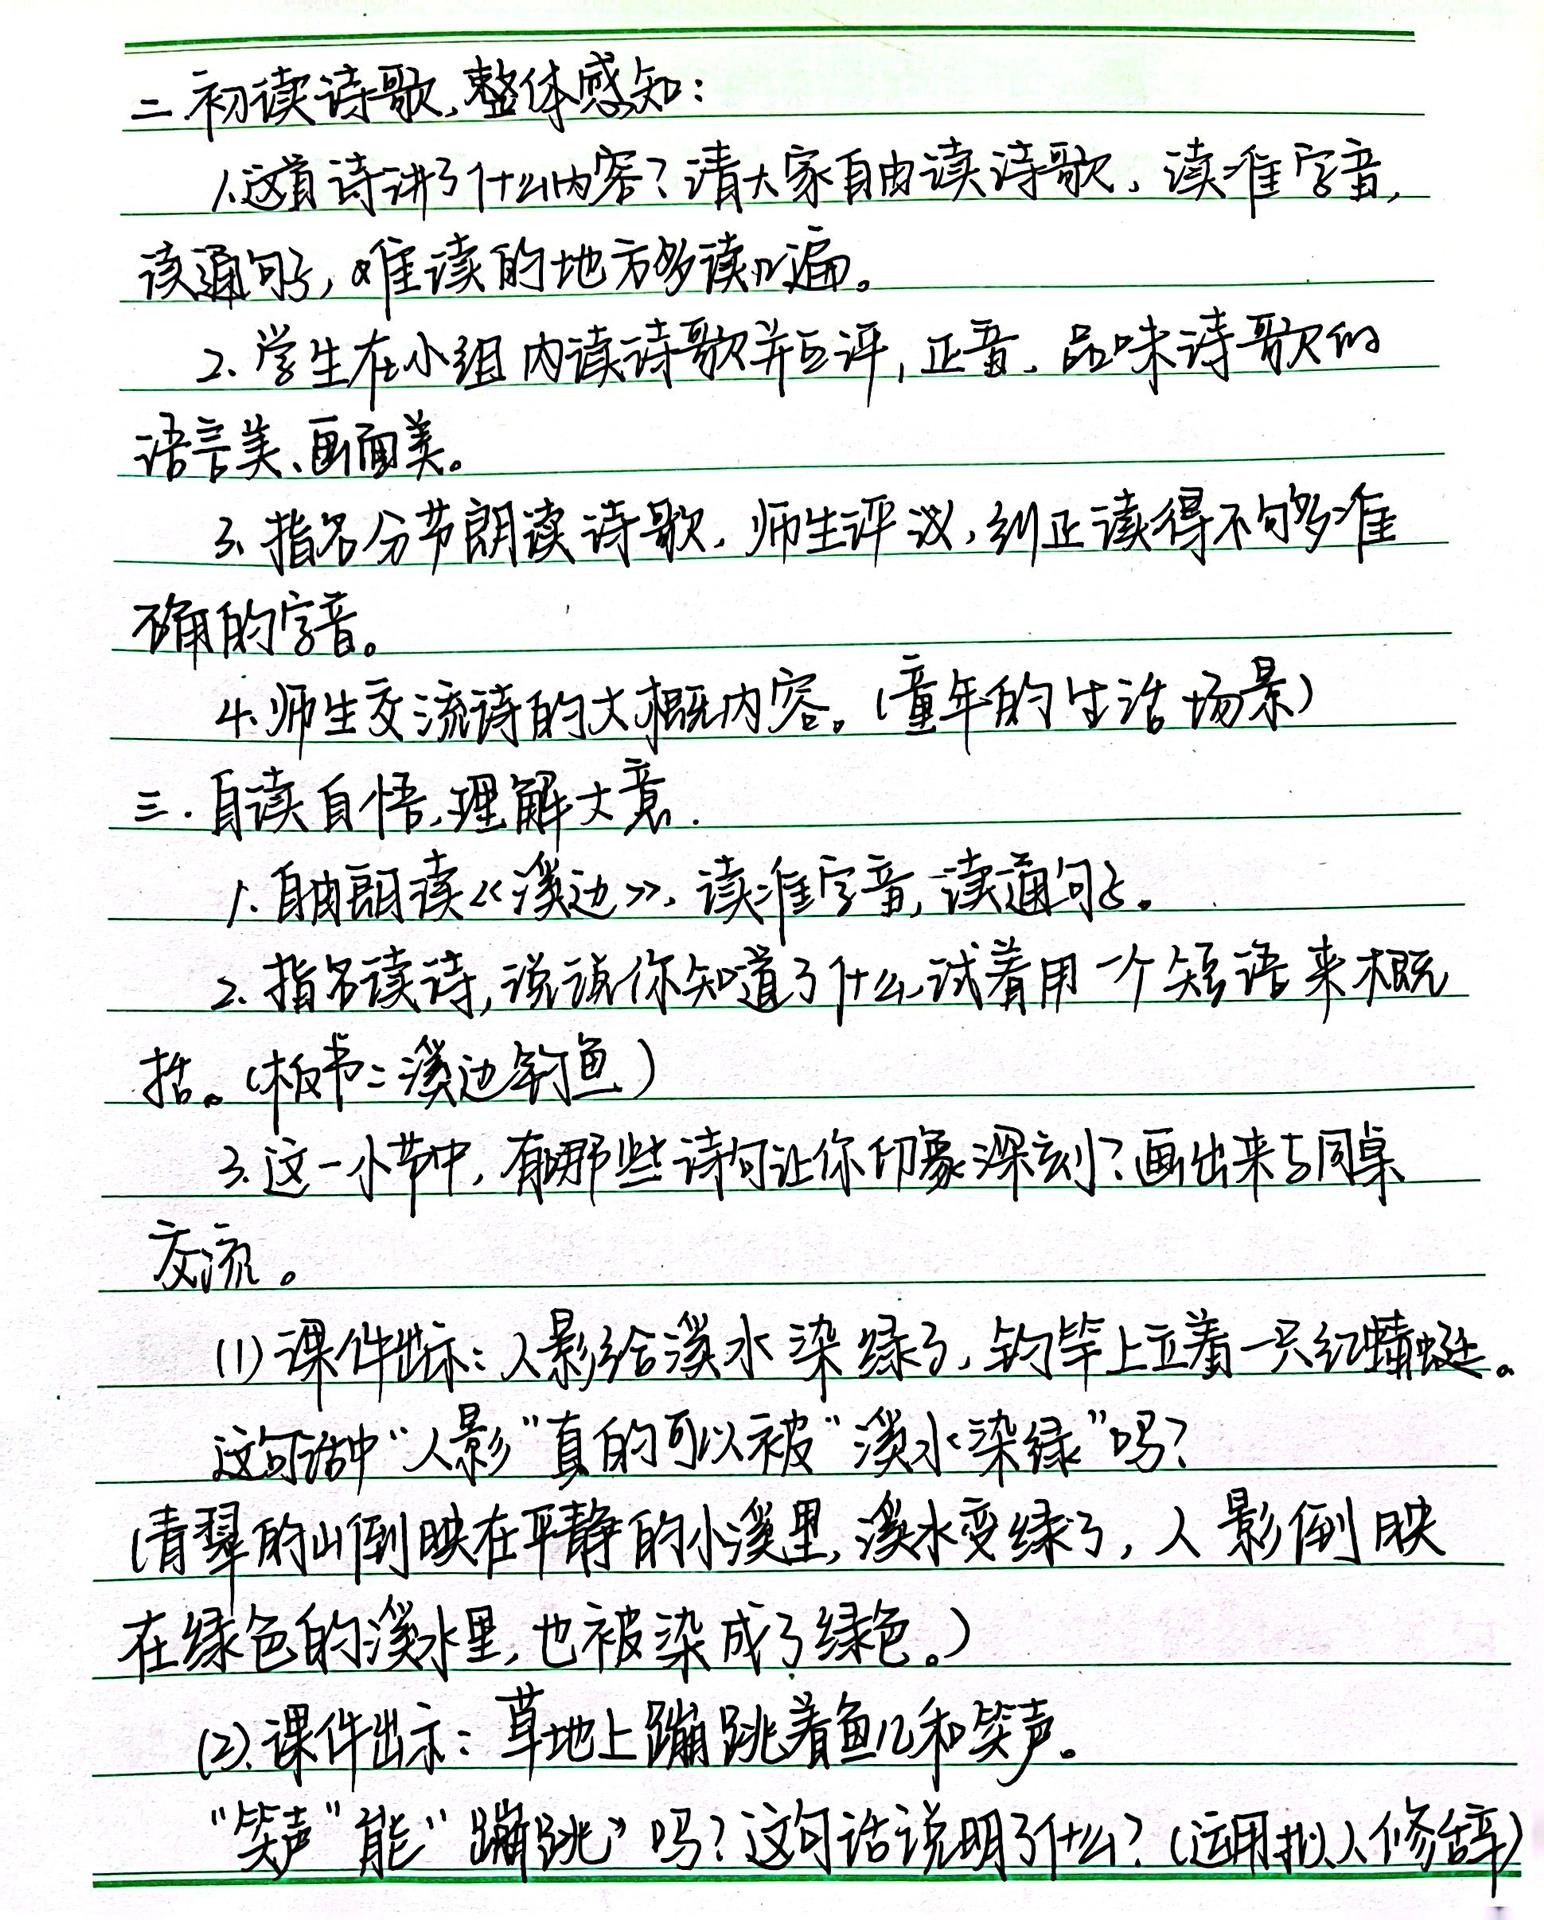 二.初读诗歌,整体感知:
1.这首诗讲了什么内容?请大家自由读诗歌,读准字音,
读通句子,难读的地方多读几遍。
2.学生在小组内读诗歌并互评,正音、品味诗歌的
语言美、画面美。
3.指名分节朗读诗歌,师生评议,纠正读得不够准
确的字音。
4.师生交流诗的大概内容。(童年的生活场景)
三.自读自悟,理解大意.
1.自由朗读《溪边》,读准字音,读通句子。
2.指名读诗,说说你知道了什么,试着用一个短语来概
括。(板书:溪边钓鱼)
3.这一小节中,有哪些诗句让你印象深刻?画出来与同桌
交流。
(1)课件出示:人影给溪水染绿了,钓竿上立着一只红蜻蜓。
这句话中“人影”真的可以被“溪水染绿”吗?
(青翠的山倒映在平静的小溪里,溪水变绿了,人影倒映
在绿色的溪水里,也被染成了绿色。)
(2).课件出示:草地上蹦跳着鱼儿和笑声。
“笑声”能“蹦跳”吗?这句话说明了什么?(运用拟人修辞)